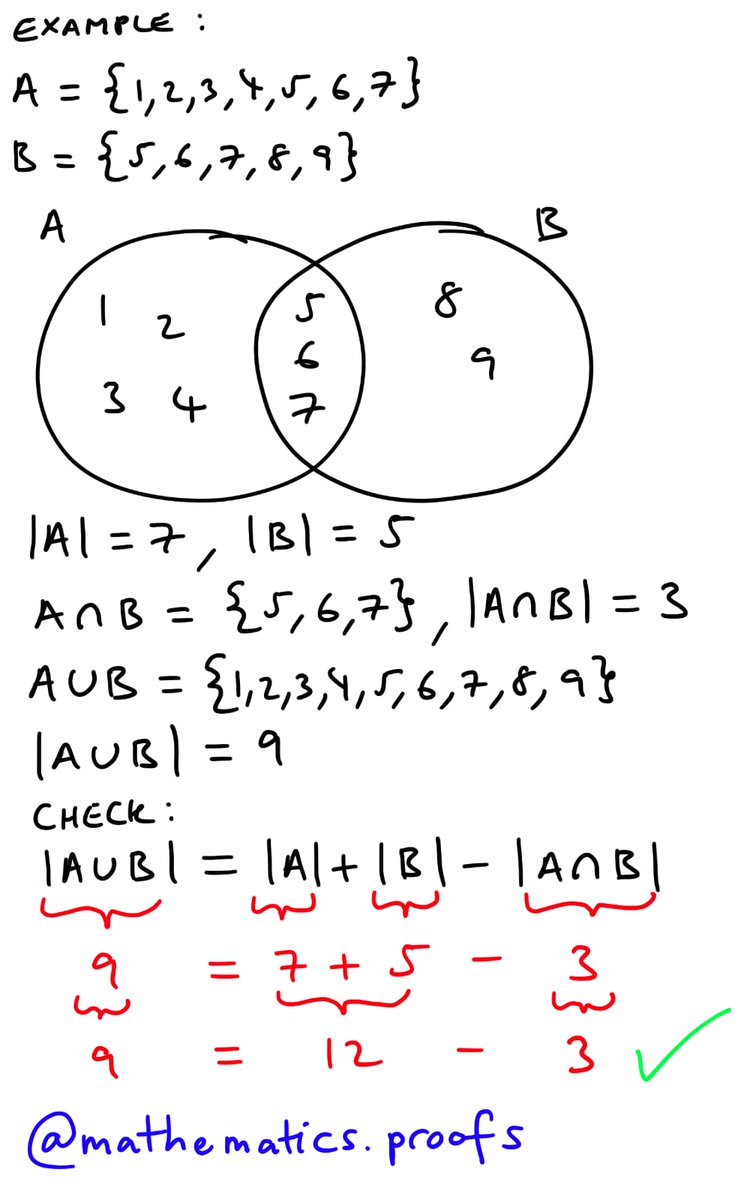 EXAMPLE :
A = {1,2,3,4,5,6,7}
B = {5,6,7,8,9}
A B
1 2 5 8
6 9
3 4 7
|A| = 7, |B| = 5
A∩B = {5,6,7}, |A∩B| = 3
A∪B = {1,2,3,4,5,6,7,8,9}
|A∪B| = 9
CHECK:
|A∪B| = |A| + |B| - |A∩B|
9 = 7 + 5 - 3
9 = 12 - 3 ✓
@mathematics.proofs